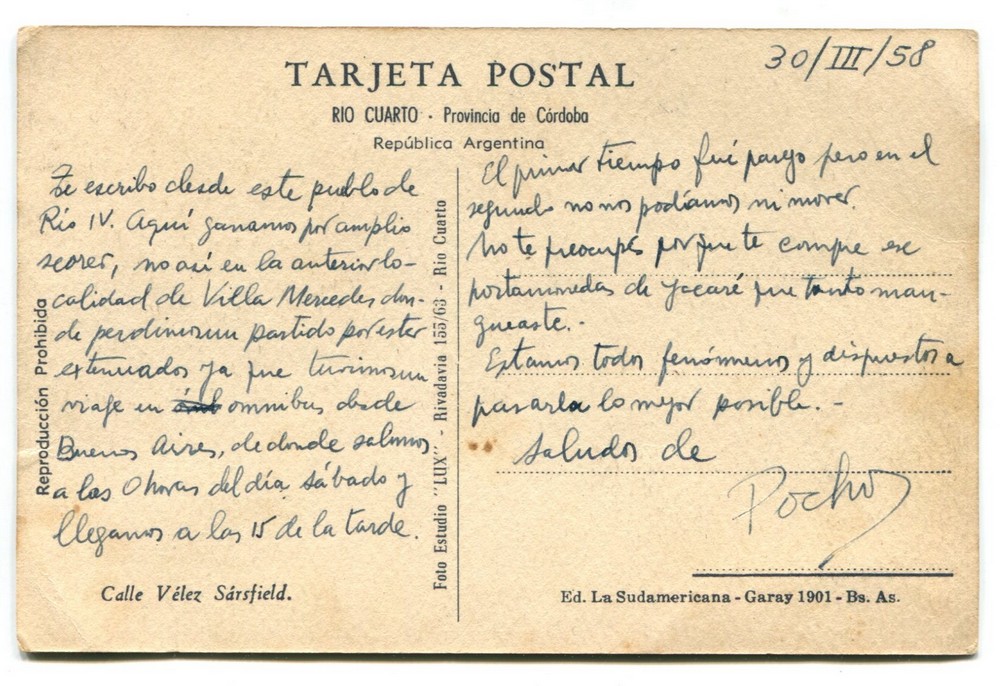 30/III/58
TARJETA POSTAL
RIO CUARTO - Provincia de Córdoba
República Argentina
Te escribo desde este pueblo de
Río IV. Aquí ganamos por amplio
scorer, no así en la anterior lo-
calidad de Villa Mercedes don-
de perdimos un partido por estar
extenuados ya que tuvimos un
viaje en omnibus desde
Buenos Aires, de donde salimos
a las 0 horas del día sábado y
llegamos a las 15 de la tarde.
El primer tiempo fué parejo pero en el
segundo no nos podíamos ni mover.
No te preocupés porque te compre ese
portamonedas de yacaré que tanto man-
gueaste.-
Estamos todos fenómenos y dispuestos a
pasarla lo mejor posible.-
Saludos de
Pocho
Reproducción Prohibida
Foto Estudio "LUX" - Rivadavia 155/63 - Rio Cuarto
Calle Vélez Sársfield.
Ed. La Sudamericana - Garay 1901 - Bs. As.